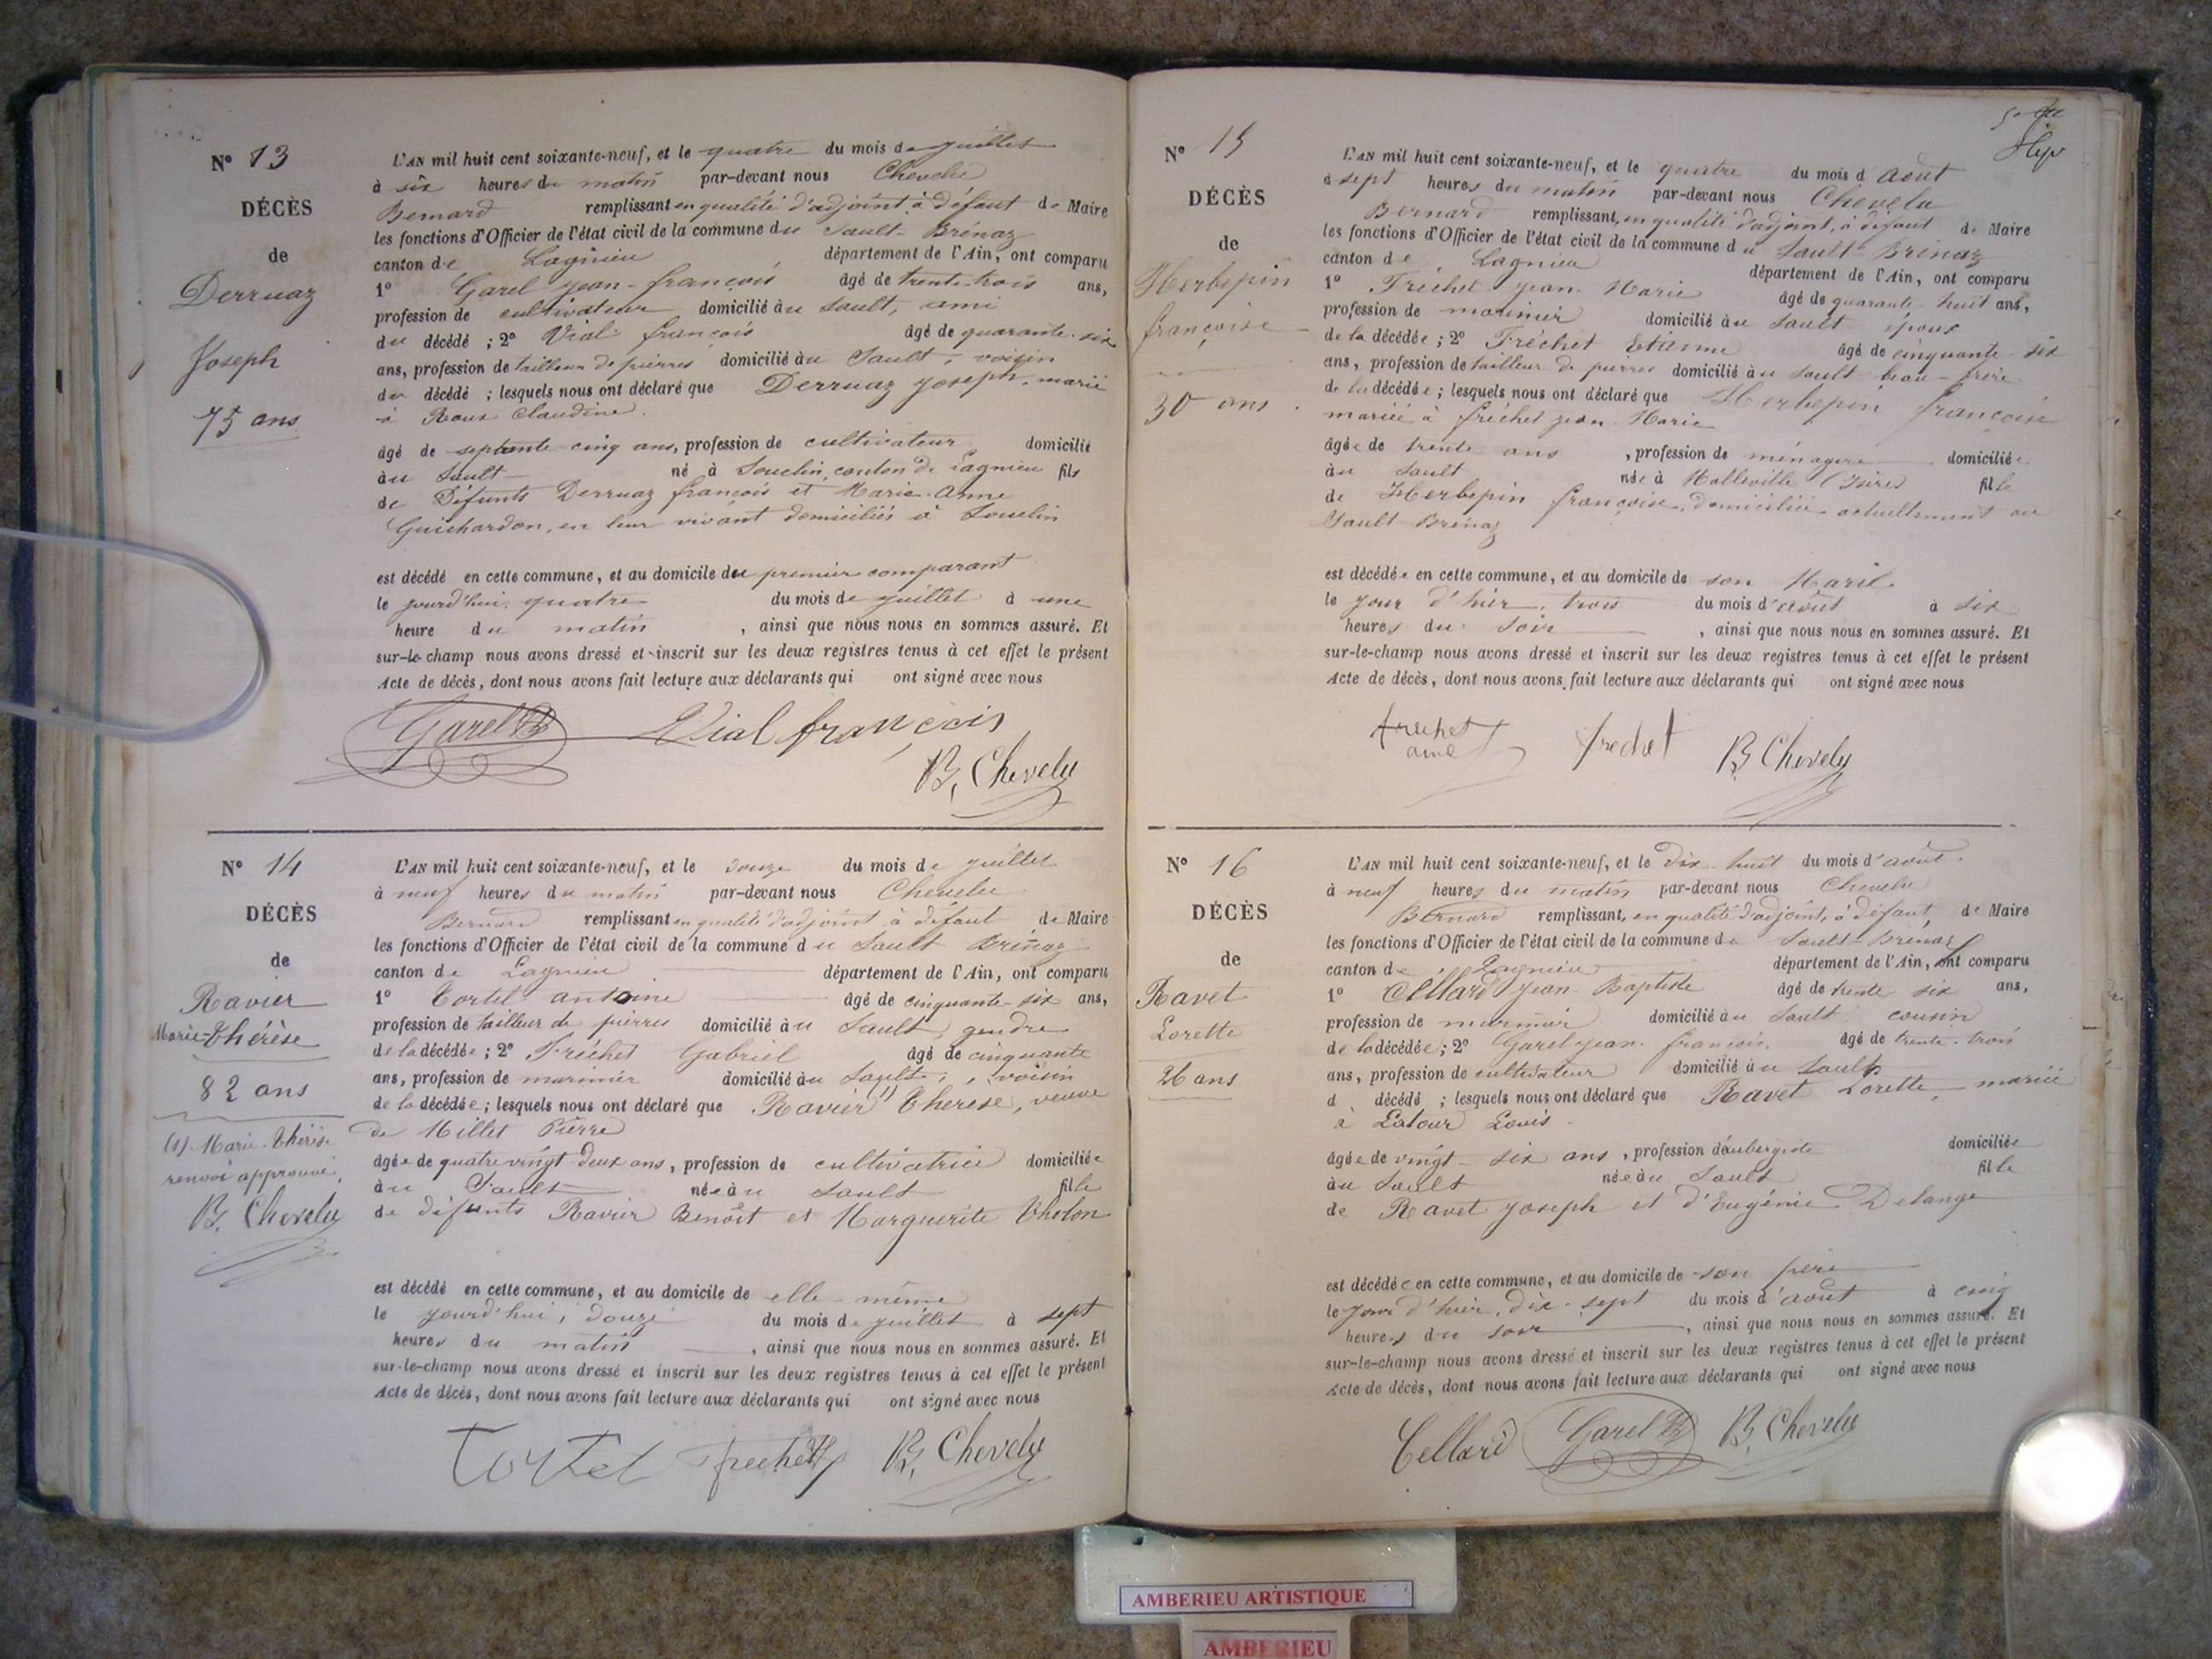 N° 13
DÉCÈS
de
Derruaz
Joseph
75 ans
L'AN mil huit cent soixante-neuf, et le quatre du mois de juillet
à six heures du matin par-devant nous Chevelu
Bernard remplissant en qualité d'adjoint à défaut de Maire
les fonctions d'Officier de l'état civil de la commune du Sault-Brénaz
canton de Lagnieu département de l'Ain, ont comparu
1° Garel Jean-françois âgé de trente-trois ans,
profession de cultivateur domicilié au Sault, ami
du décédé ; 2° Vial françois âgé de quarante-six
ans, profession de tailleur de pierres domicilié au Sault, voisin
du décédé ; lesquels nous ont déclaré que Derruaz Joseph, marié
à Roux Claudine.
âgé de septante cinq ans, profession de cultivateur domicilié
au Sault né à Souclin, canton de Lagnieu fils
de Défunts Derruaz françois et Marie-Anne
Guichardon, en leur vivant domiciliés à Souclin
est décédé en cette commune, et au domicile du premier comparant
le jourd'hui quatre du mois de juillet à une
heure du matin, ainsi que nous nous en sommes assuré. Et
sur-le-champ nous avons dressé et inscrit sur les deux registres tenus à cet effet le présent
Acte de décès, dont nous avons fait lecture aux déclarants qui ont signé avec nous
Garel Vial françois
B. Chevelu
N° 14
DÉCÈS
de
Ravier
Marie-thérèse
82 ans
(1) Marie-thérèse
renvoi approuvé,
B. Chevelu
L'AN mil huit cent soixante-neuf, et le douze du mois de juillet
à neuf heures du matin par-devant nous Chevelu
Bernard remplissant en qualité d'adjoint à défaut de Maire
les fonctions d'Officier de l'état civil de la commune du Sault Brénaz
canton de Lagnieu département de l'Ain, ont comparu
1° Tortel antoine âgé de cinquante-six ans,
profession de tailleur de pierres domicilié au Sault, gendre
de la décédée ; 2° Fréchet Gabriel âgé de cinquante
ans, profession de marinier domicilié au Sault ; voisin
de la décédée ; lesquels nous ont déclaré que Ravier (1) thérèse, veuve
de Millet Pierre
âgée de quatre vingt deux ans, profession de cultivatrice domiciliée
au Sault née au Sault fille
de défunts Ravier Benoît et Marguerite Tholon
est décédé en cette commune, et au domicile de elle-même
le jourd'hui, douze du mois de juillet à sept
heures du matin, ainsi que nous nous en sommes assuré. Et
sur-le-champ nous avons dressé et inscrit sur les deux registres tenus à cet effet le présent
Acte de décès, dont nous avons fait lecture aux déclarants qui ont signé avec nous
Tortel frechet B. Chevelu
N° 15
DÉCÈS
de
Herbepin
françoise
30 ans
L'AN mil huit cent soixante-neuf, et le quatre du mois d août
à sept heures du matin par-devant nous Chevelu
Bernard remplissant, en qualité d'adjoint, à défaut de Maire
les fonctions d'Officier de l'état civil de la commune du Sault-Brénaz
canton de Lagnieu département de l'Ain, ont comparu
1° Fréchet Jean-Marie âgé de quarante-huit ans,
profession de marinier domicilié au Sault époux
de la décédée ; 2° Fréchet Etienne âgé de cinquante-six
ans, profession de tailleur de pierres domicilié au Sault beau-frère
de la décédée ; lesquels nous ont déclaré que Herbepin françoise
mariée à fréchet Jean-Marie
âgée de trente ans, profession de ménagère domiciliée
au Sault née à Malleville (Isère) fille
de Herbepin françoise, domiciliée actuellement au
Sault-Brénaz
est décédée en cette commune, et au domicile de son Mari
le jour d'hier, trois du mois d'août à six
heures du soir, ainsi que nous nous en sommes assuré. Et
sur-le-champ nous avons dressé et inscrit sur les deux registres tenus à cet effet le présent
Acte de décès, dont nous avons fait lecture aux déclarants qui ont signé avec nous
frechet frechet B. Chevelu
N° 16
DÉCÈS
de
Ravet
Lorette
26 ans
L'AN mil huit cent soixante-neuf, et le dix-huit du mois d'août
à neuf heures du matin par-devant nous Chevelu
Bernard remplissant, en qualité d'adjoint, à défaut, de Maire
les fonctions d'Officier de l'état civil de la commune du Sault-Brénaz
canton de Lagnieu département de l'Ain, ont comparu
1° Cellard Jean-Baptiste âgé de trente six ans,
profession de marinier domicilié au Sault cousin
de la décédée ; 2° Garel Jean-françois, âgé de trente-trois
ans, profession de cultivateur domicilié au Sault
d décédé ; lesquels nous ont déclaré que Ravet Lorette, mariée
à Latour Louis.
âgée de vingt-six ans, profession d'aubergiste domiciliée
au Sault née au Sault fille
de Ravet Joseph et d'Eugénie Delange
est décédée en cette commune, et au domicile de son père
le jour d'hier, dix-sept du mois d'août à cinq
heures du soir, ainsi que nous nous en sommes assuré. Et
sur-le-champ nous avons dressé et inscrit sur les deux registres tenus à cet effet le présent
Acte de décès, dont nous avons fait lecture aux déclarants qui ont signé avec nous
Cellard Garel B. Chevelu
AMBERIEU ARTISTIQUE
AMBERIEU